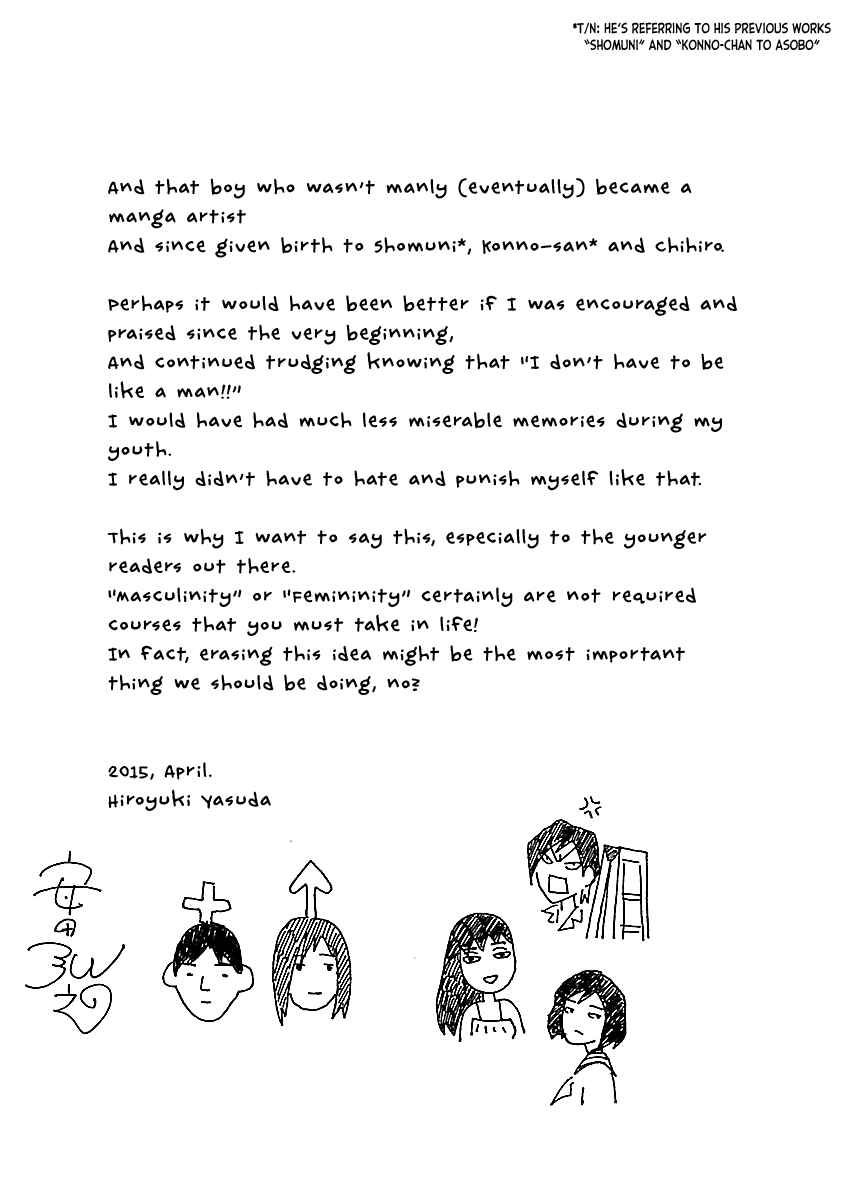 *T/N: HE'S REFERRING TO HIS PREVIOUS WORKS
"SHOMUNI" AND "KONNO-CHAN TO ASOBO"
And that boy who wasn't manly (eventually) became a
manga artist
And since given birth to Shomuni*, Konno-san* and Chihiro.
Perhaps it would have been better if I was encouraged and
praised since the very beginning,
And continued trudging knowing that "I don't have to be
like a man!!"
I would have had much less miserable memories during my
youth.
I really didn't have to hate and punish myself like that.
This is why I want to say this, especially to the younger
readers out there.
"Masculinity" or "Femininity" certainly are not required
courses that you must take in life!
In fact, erasing this idea might be the most important
thing we should be doing, no?
2015, April.
Hiroyuki Yasuda
安
田
弘
之